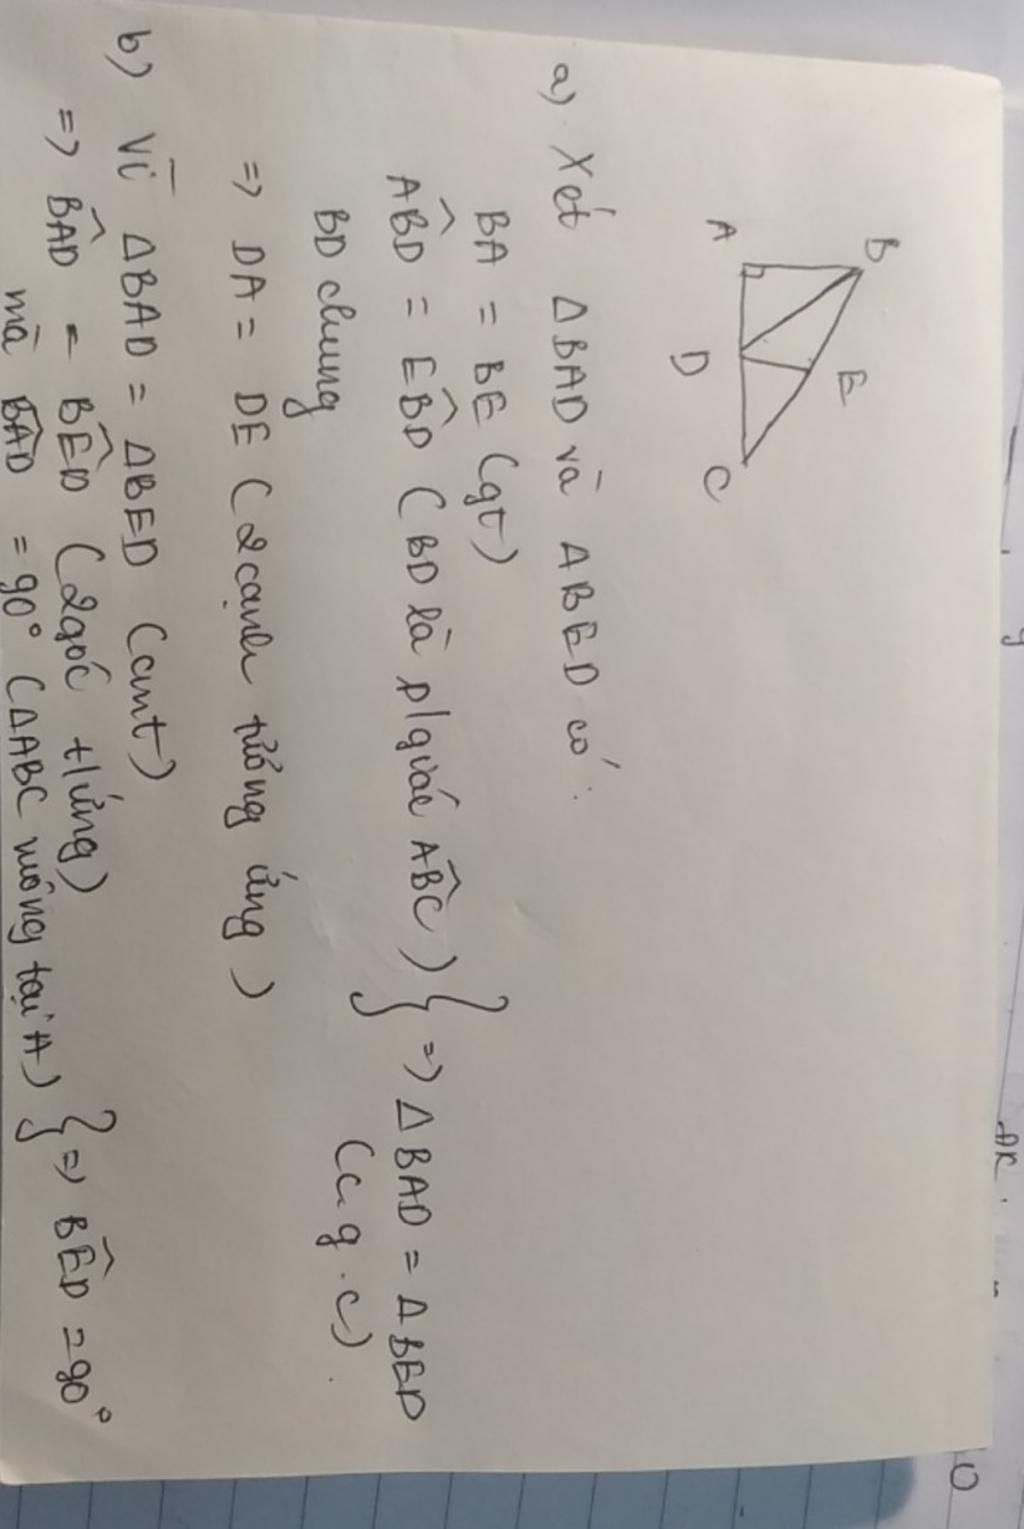 B
A
E
D
C
a) Xét ΔBAD và ΔBED có:
BA = BE (gt)
ABD̂ = EBD̂ (BD là p/giác ABĈ) } => ΔBAD = ΔBED
BD chung (c.g.c)
=> DA = DE (2 cạnh tương ứng)
b) Vì ΔBAD = ΔBED (cmt)
=> BAD̂ = BED̂ (2 góc t/ứng)
mà BAD̂ = 90° (ΔABC vuông tại A) } => BED̂ = 90°